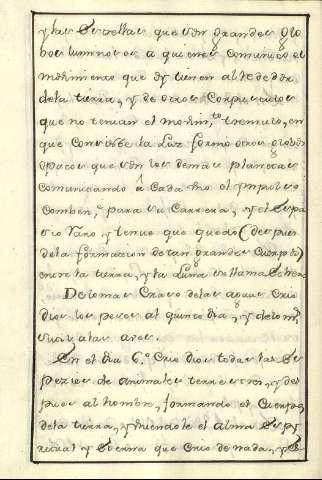 y las Estrellas que son grandes glo
bos luminosos a quienes comunicó el
movimiento que oy tienen al rededor
de la tierra, y de otros Corpusculos
que no tenian el movim.to tremulo, en
que consiste la Luz formo otros globos
opacos que son los demas planetas
comunicando à Cada uno el ympulso
comben.te para su Carrera, y el Espa
cio Vano y tenue que quedo (despues
de la formacion de tan grandes Cuerpos)
entre la tierra, y la Luna se llama
De lo mas Craso de las aguas Crio
dios los peces al quinto dia, y de lo m.s
sutil a las aves.
En el dia 6.º Crio dios todas las Es
pezies de animales terrestres, y des
pues al hombre, formando el Cuerpo
de la tierra, y el alma Espy
ritual y Eterna que Crio de nada, y